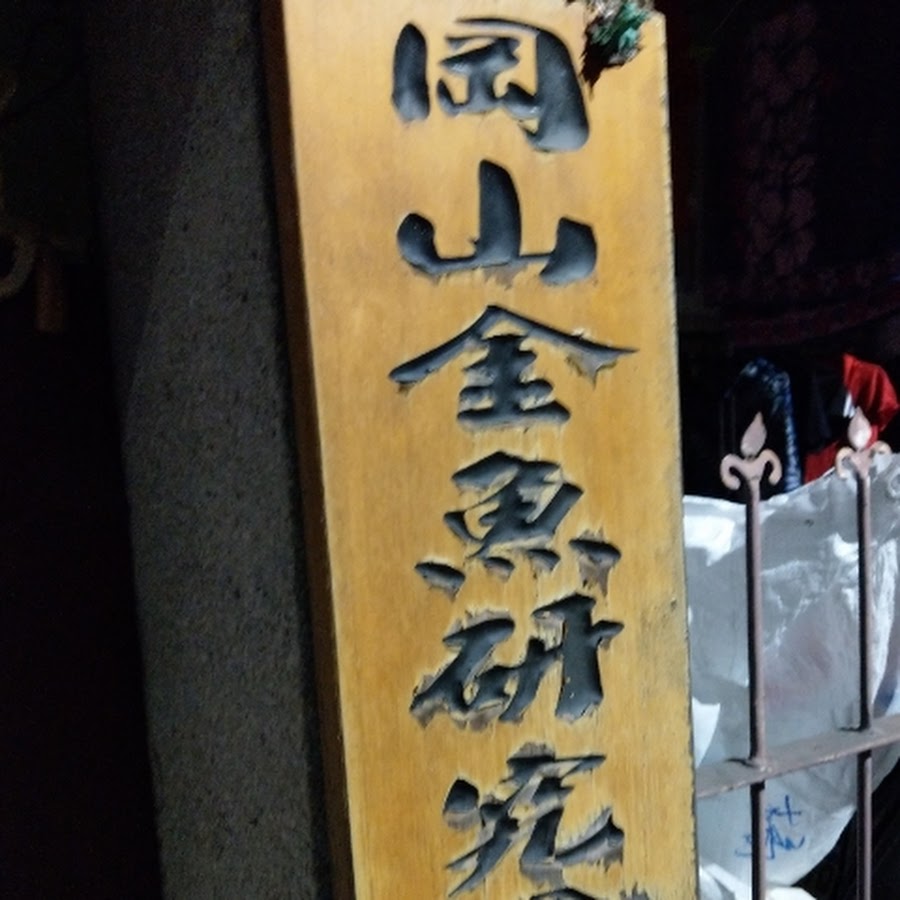 岡山金魚研究